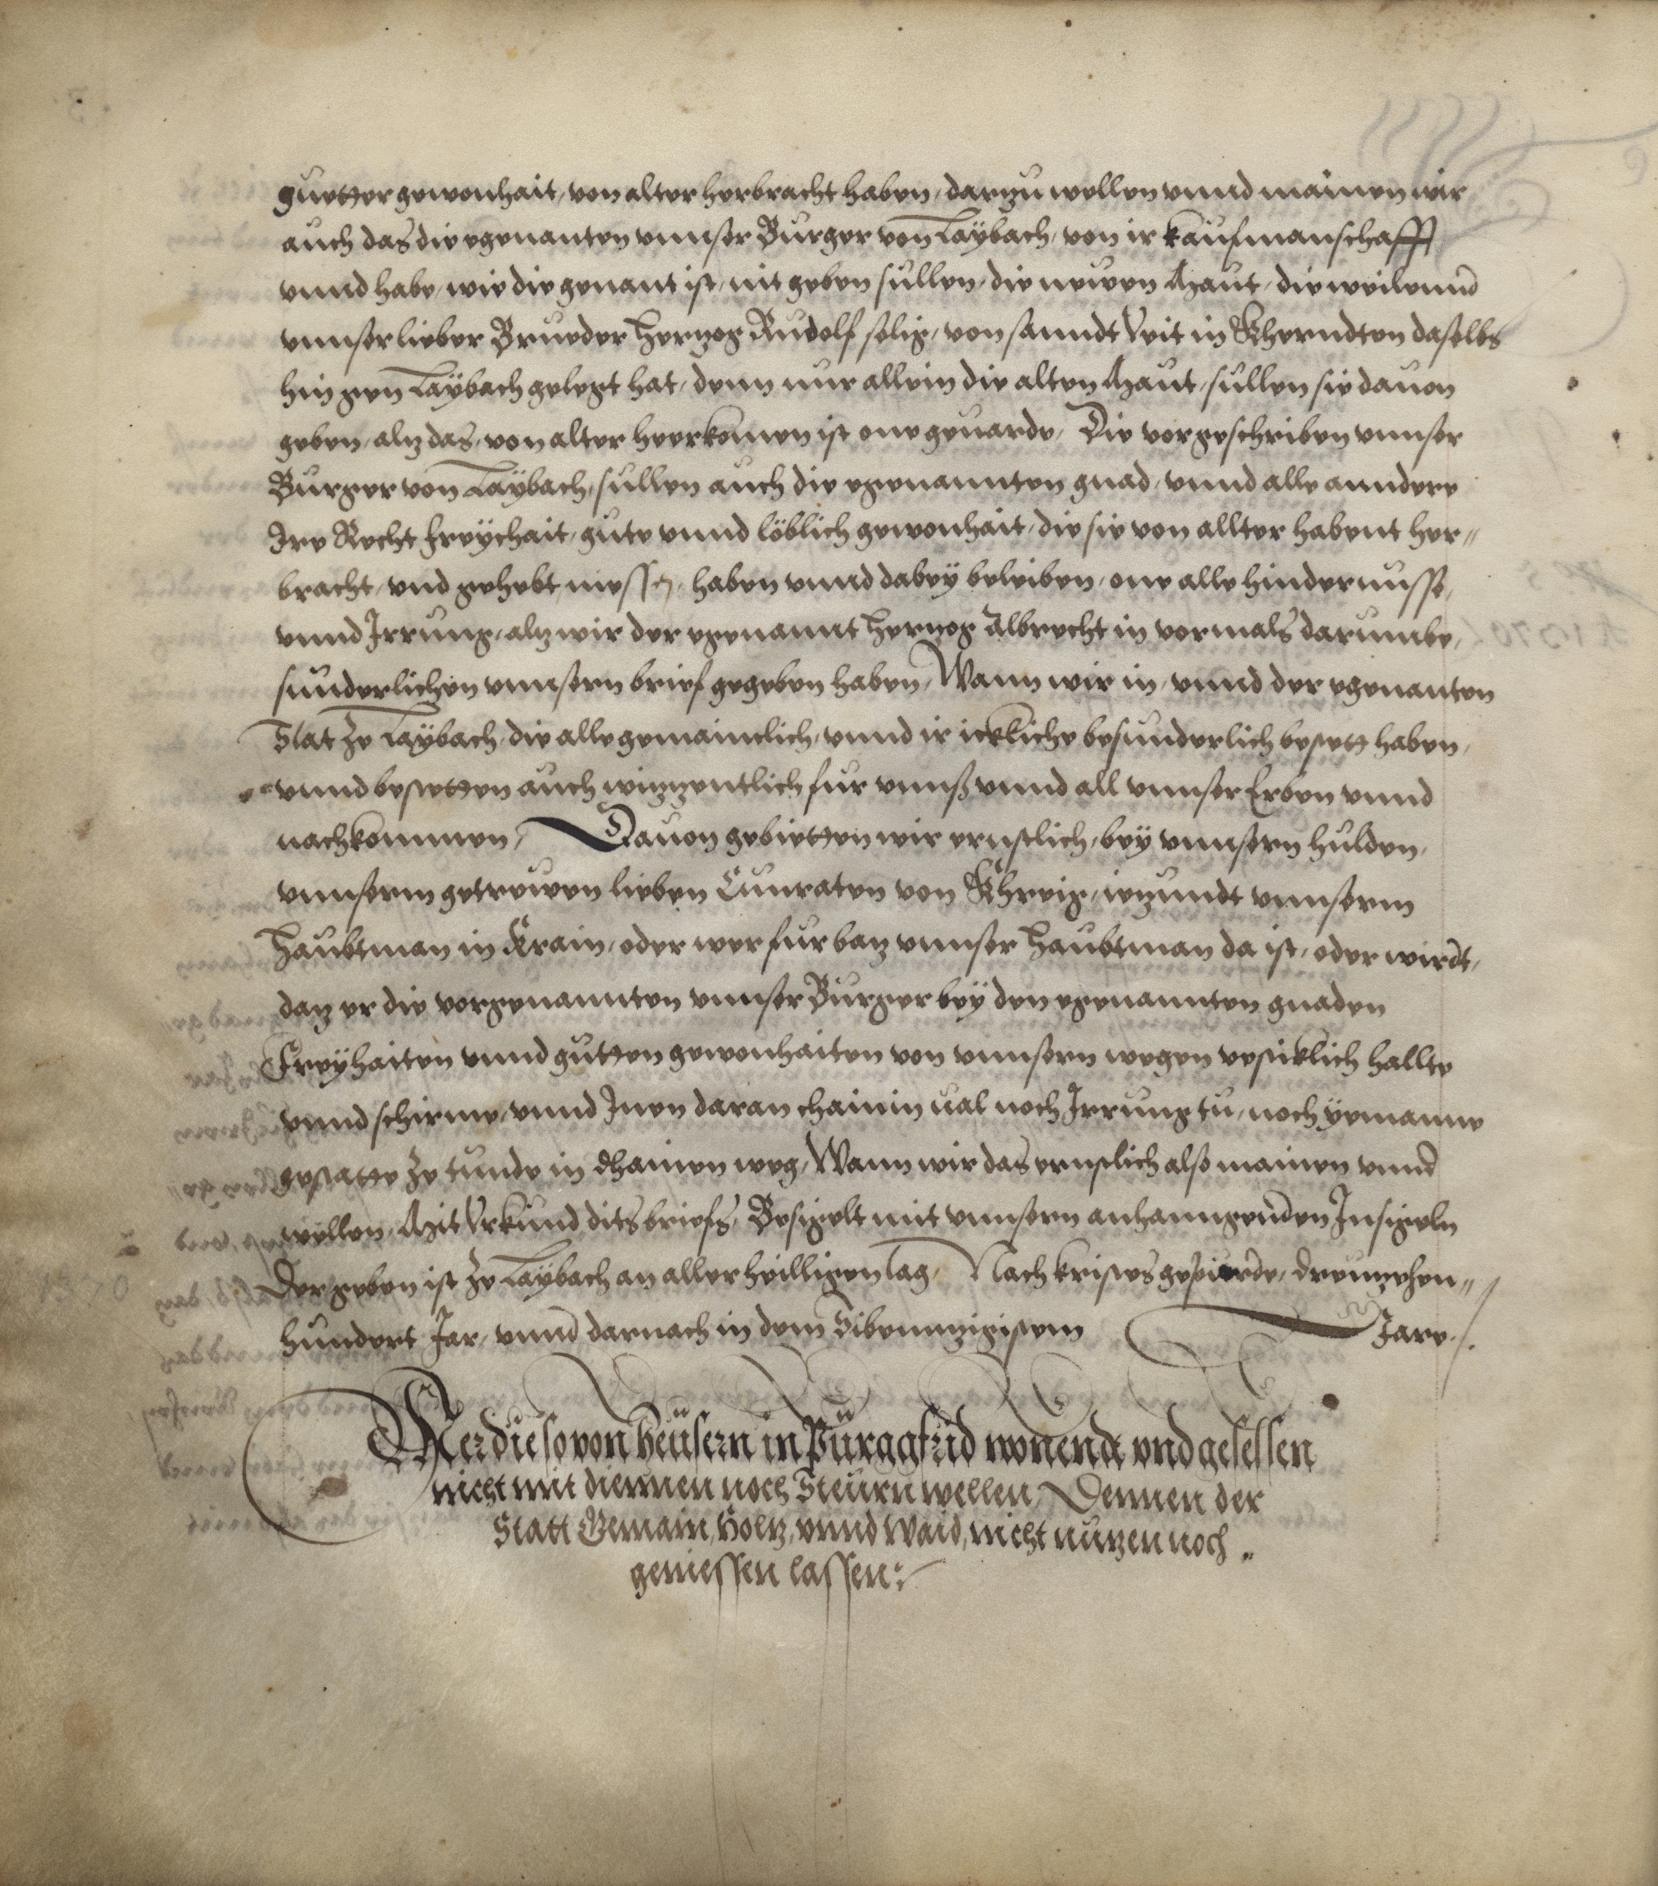 guetter gewonhait, von alter herbracht haben, darzu wellen vnnd mainen wir
auch das die egenanten vnnser Burger von Laÿbach, von ir kaufmanschafft
vnnd habe, wie die genant ist, nit geben sullen, die newen Maut, die weilennd
vnnser lieber Brueder Hertzog Rudolf selig, von sanndt Veit in Kherndten daselbs
hin gen Laÿbach gelegt hat, denn nur allein die alten Maut, sullen sie dauon
geben, alz das, von alter heerkomen ist one geuarde, Die vorgeschriben vnnser
Burger von Laÿbach, sullen auch die egenannten gnad, vnnd alle anndere
Ire Recht freÿhait, gute vnnd löblich gewonhait, die sie von allter habent her„
bracht, vnd gehebt niessen, haben vnnd dabeÿ beleiben, one alle hindernusse,
vnnd Irrung, alz wir der egenannt Hertzog Albrecht in vormals darumbe,
sunderlichen vnnsern brief gegeben haben, Wann wir in, vnnd der egenanten
Stat ze Laÿbach, die alle gemainclich, vnnd ir iekliche besunderlich bestett haben,
vnnd bestetten auch wizzentlich fur vnnß vnnd all vnnser Erben vnnd
nachkommen, Dauon gebietten wir ernstlich, beÿ vnnsern hulden,
vnnserm getrewen lieben Cunraten von Khreig, iezundt vnnserm
Haubtman in Krain, oder wer fur baz vnnser Haubtman da ist, oder wirdt,
daz er die vorgenannten vnnser Burger beÿ den egenannten gnaden
Freÿhaiten vnnd gutten gewonhaiten von vnnsern wegen vestiklich hallte
vnnd schirme, vnnd Inen daran chainin ual noch Irrung tu, noch ÿemanne
gestatte ze tunde in dhainen weg, Wann wir das ernstlich also mainen vnnd
wellen, Mit Vrkund dits briefs, Besigelt mit vnnsern anhanngenden Insigeln
Der geben ist ze Laÿbach an aller heilligen tag, Nach kristes gepuerde, dreuzehen„
hundert Jar, vnnd darnach in dem Sibenntzigistem Jare.
Wer die so von heüsern in Purggfrid wonend vnd gesessen
nicht mit diennen noch Steurn wellen, Dennen der
Statt Gemain, Holtz, vnnd Waid, nicht nutzen noch„
geniessen lassen: